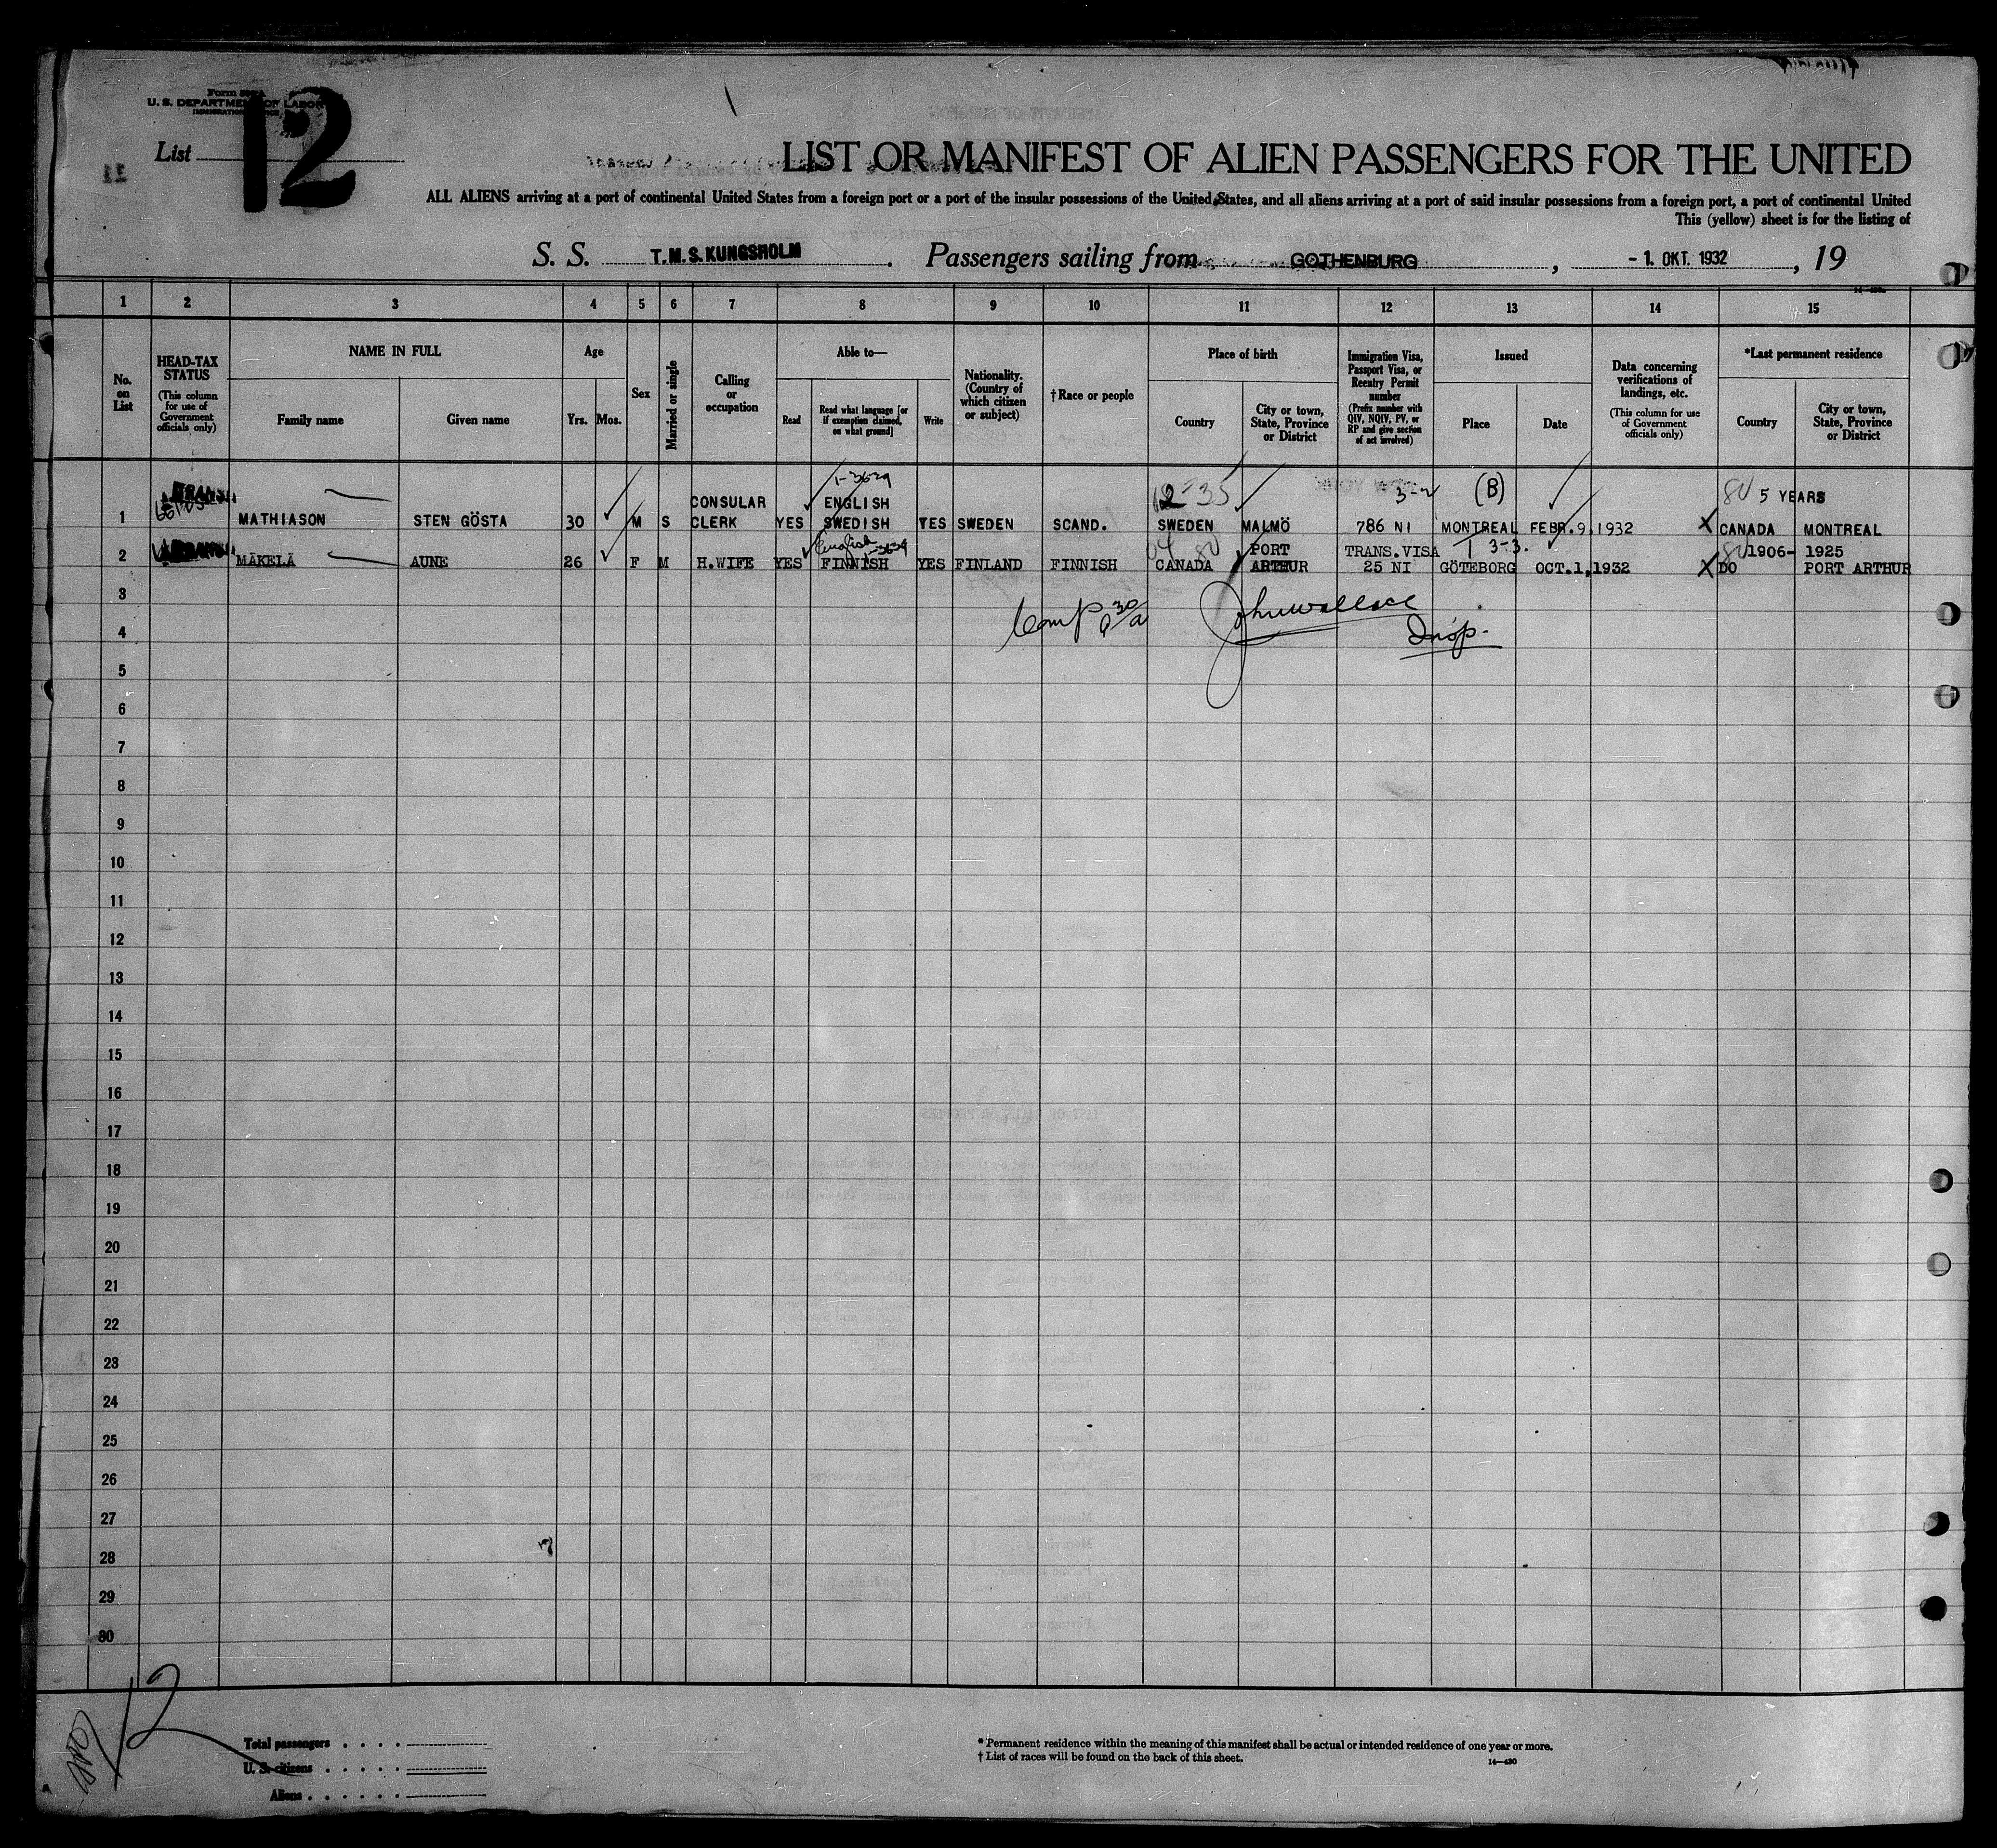 Form
U. S. DEPARTMENT OF LABOR
List 12
LIST OR MANIFEST OF ALIEN PASSENGERS FOR THE UNITED
ALL ALIENS arriving at a port of continental United States from a foreign port or a port of the insular possessions of the United States, and all aliens arriving at a port of said insular possessions from a foreign port, a port of continental United
This (yellow) sheet is for the listing of
S. S. T.M.S. KUNGSHOLM. Passengers sailing from GOTHENBURG, - 1. OKT. 1932, 19
1 2 3 4 5 6 7 8 9 10 11 12 13 14 15
No. on List
HEAD-TAX STATUS
(This column for use of Government officials only)
NAME IN FULL
Family name
Given name
Age
Yrs. Mos.
Sex
Married or single
Calling or occupation
Able to—
Read
Read what language [or if exemption claimed, on what ground]
Write
Nationality. (Country of which citizen or subject)
†Race or people
Place of birth
Country
City or town, State, Province or District
Immigration Visa, Passport Visa, or Reentry Permit number
(Prefix number with QIV, NQIV, PV, or RP and give section of act involved)
Issued
Place
Date
Data concerning verifications of landings, etc.
(This column for use of Government officials only)
*Last permanent residence
Country
City or town, State, Province or District
1-3639 12-35 3-2 (B) 80 5 YEARS
CONSULAR ENGLISH
1 MATHIASON STEN GÖSTA 30 M S CLERK YES SWEDISH YES SWEDEN SCAND. SWEDEN MALMÖ 786 NI MONTREAL FEBR.9,1932 X CANADA MONTREAL
English 1-3639 04 80 PORT TRANS.VISA T 3-3. 80 1906- 1925
2 MÄKELÄ AUNE 26 F M H.WIFE YES FINNISH YES FINLAND FINNISH CANADA ARTHUR 25 NI GÖTEBORG OCT.1,1932 X DO PORT ARTHUR
3
John Wallace
4
Insp.
5
6
7
8
9
10
11
12
13
14
15
16
17
18
19
20
21
22
23
24
25
26
27
28
29
30
12
Total passengers . . . .
U. S. citizens . . . . .
Aliens . . . . . .
* Permanent residence within the meaning of this manifest shall be actual or intended residence of one year or more.
† List of races will be found on the back of this sheet.
14—430